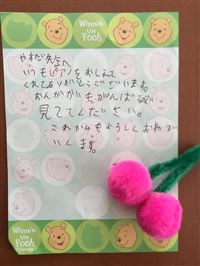 Winnie
the
Pooh
やすだ先生へ
いつもピアノをおしえて
くれてありがとうございます。
おんがかいもがんばるので
見ててください。
これからもよろしくおねがい
いします。
Winnie
the
Pooh